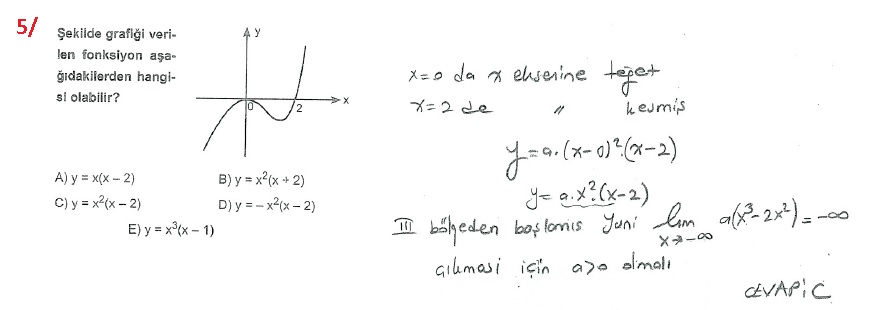 5/
Şekilde grafiği veri-
len fonksiyon aşa-
ğıdakilerden hangi-
si olabilir?
y
x
0
2
A) y = x(x – 2)
B) y = x²(x + 2)
C) y = x²(x – 2)
D) y = – x²(x – 2)
E) y = x³(x – 1)
x=0 da x eksenine teğet
x=2 de " kesmiş
y=a.(x-0)².(x-2)
y= a.x².(x-2)
III bölgeden başlamış yani lim x→-∞ a(x³-2x²)=-∞
çıkması için a>0 olmalı
CEVAP: C